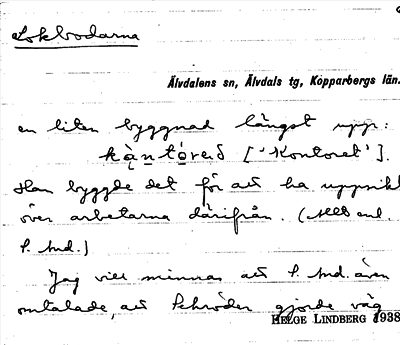 Lokbodarna
Älvdalens sn, Älvdals tg, Kopparbergs län.
en liten byggnad längst upp:
kạntóreð ['Kontoret'].
Han byggde det för att ha uppsikt
över arbetarna därifrån. (Allt enl.
P. And.)
Jag vill minnas att P. And. även
omtalade, att Schröder gjorde väg
HELGE LINDBERG 1938